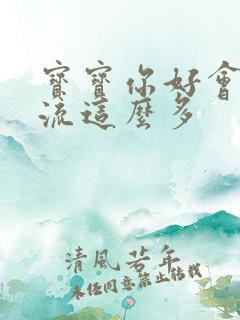 寶寶你好會
流這麼多
清風若年
未經同意禁止轉載